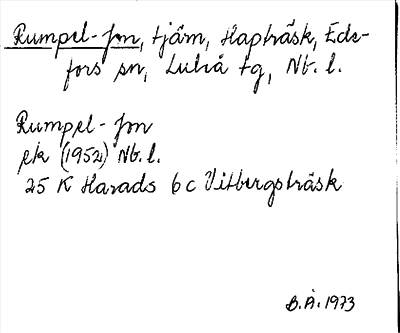 Rumpel-Jon, tjärn, Hapträsk, Ede-
fors sn, Luleå tg, Nb. l.
Rumpel-Jon
ek (1952) Nb. l.
25 K Harads 6 c Vitbergsträsk
B.Å. 1973